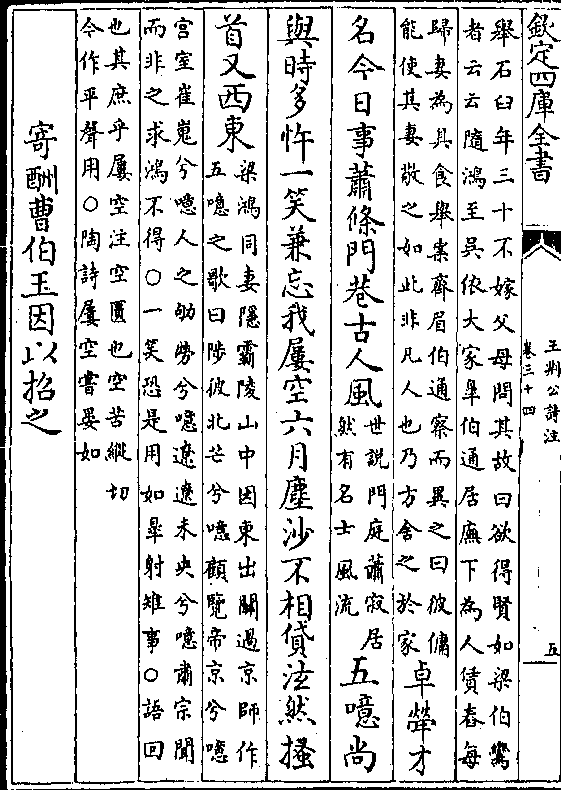 欽定四庫全書
王荆公詩注
卷三十四
五
舉石臼年三十不嫁父母問其故曰欲得賢如梁伯鸞
者云云隨鴻至吳依大家臯伯通居廡下為人賃舂每
歸妻為具食舉案齊眉伯通察而異之曰彼傭
能使其妻敬之如此非凡人也乃方舍之於家
卓犖才
名今日事蕭條門巷古人風
世説門庭蕭寂居
然有名士風流
五噫尚
與時多忤一笑兼忘我屢空六月塵沙不相貸泫然搔
首又西東
梁鴻同妻隱霸陵山中因東出關過京師作
五噫之歌曰陟彼北芒兮噫顧覽帝京兮噫
宫室崔嵬兮噫人之劬勞兮噫遼遼未央兮噫肅宗聞
而非之求鴻不得○一笑恐是用如臯射雉事○語回
也其庶乎屢空注空匱也空苦縱切
今作平聲用○陶詩屢空嘗晏如
寄酬曹伯玉因以招之